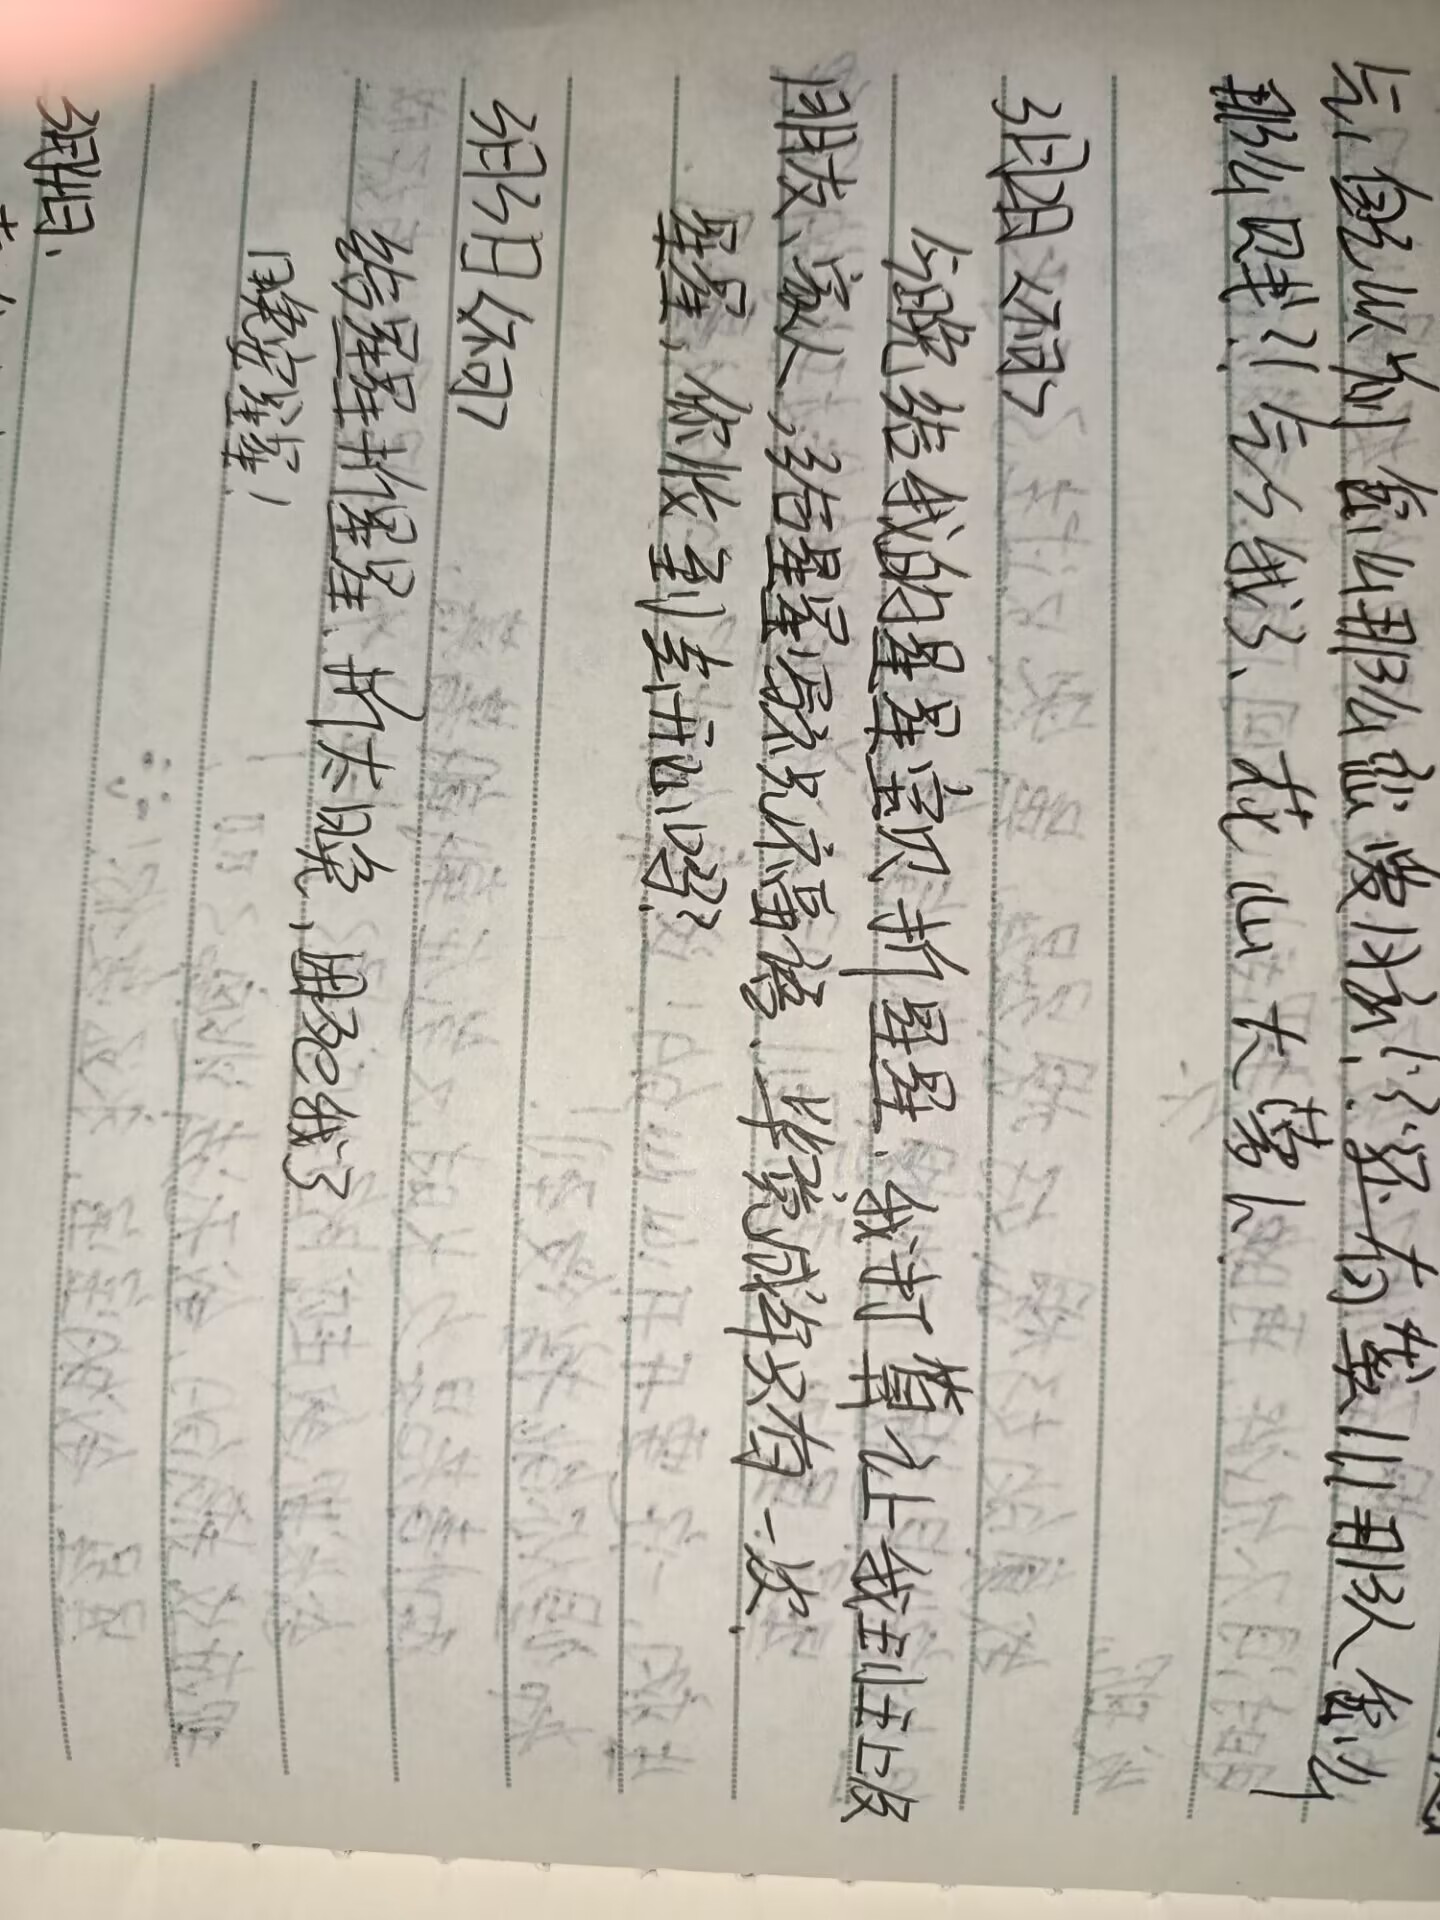 气,自己以前怎么那么恋爱脑!?还有龚!!!那人怎么
那么贱?!气死我了、花心大萝卜.
3月2日<不回>
今晚给我的星星宝贝折星星、我打算让我到班上及
朋友、家人,给星星写祝福语、毕竟成年只有一次.
星星,你收到会开心吗?
3月3日<不回>
给星星折星星、折太晚,困死我了
晚安星星!
3月4日.